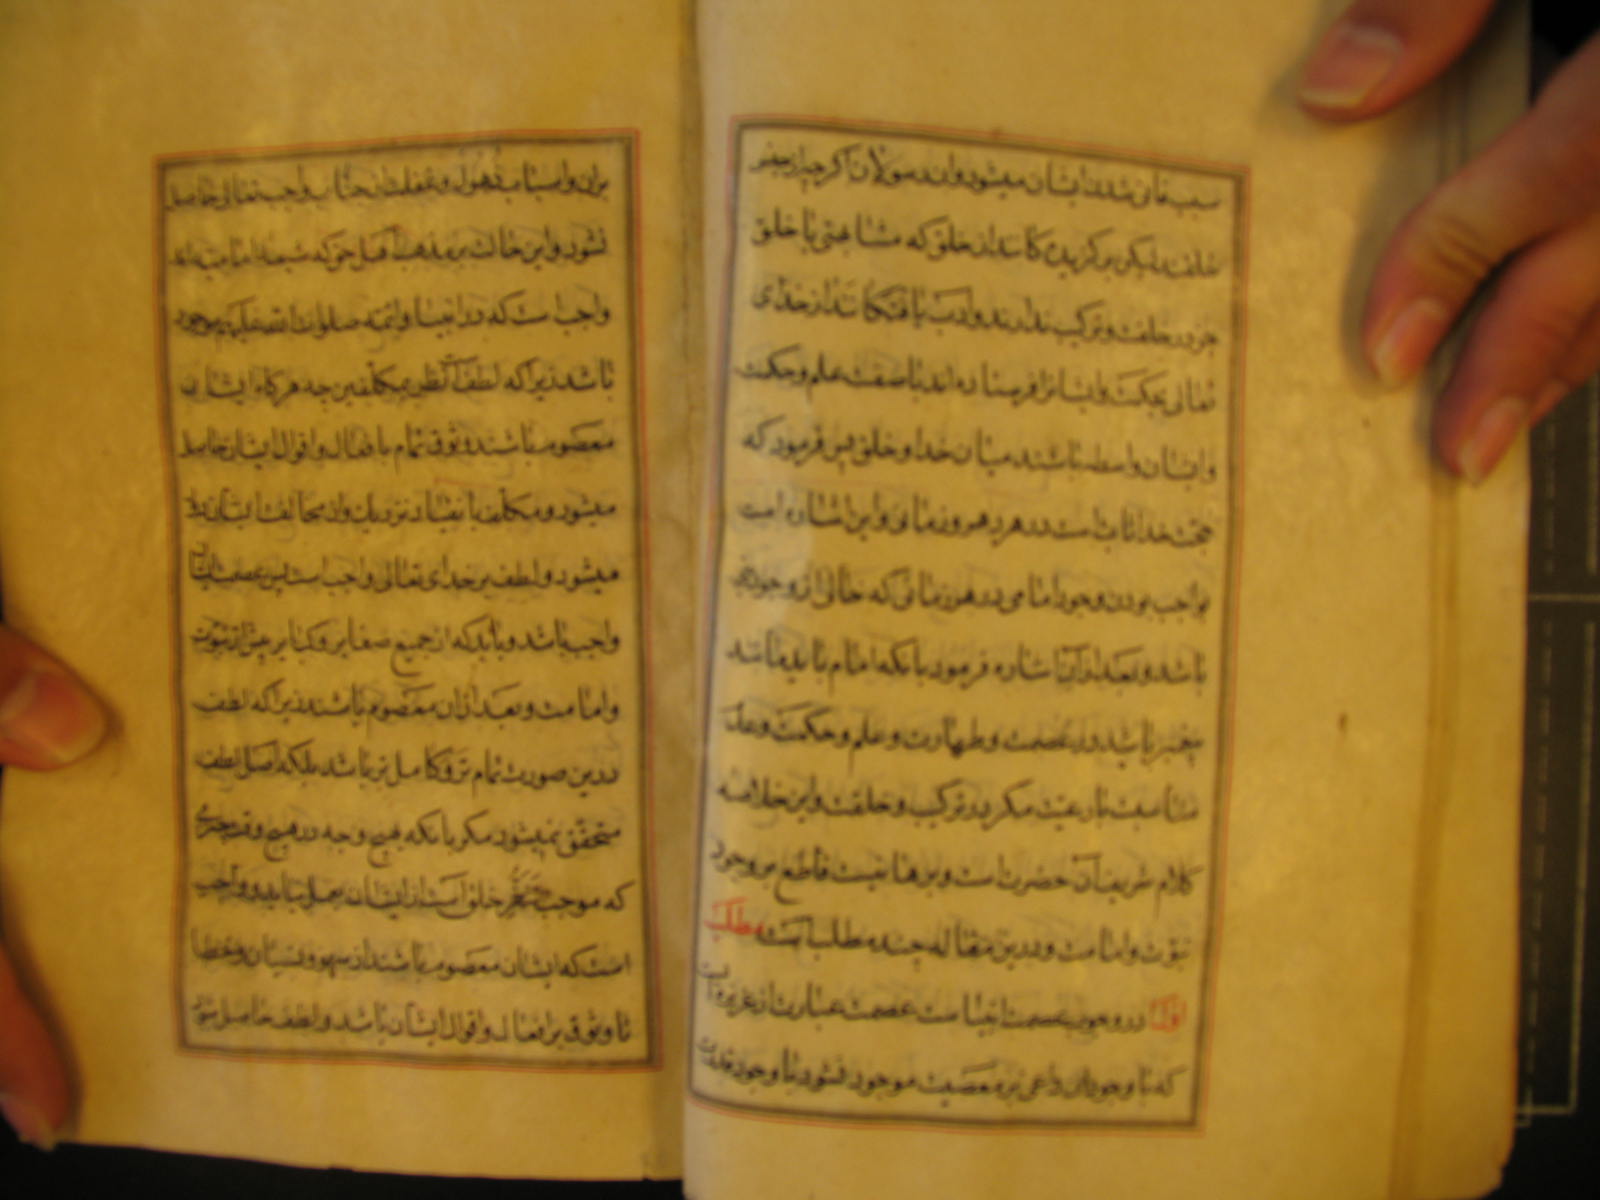 سبب فانی شدن ایشان میشود و اند مولان اگر چه از جنس
خلقند لیکن برگزیده کانند از خلق که مشابهتی با خلق
جز در خلقت و ترکیب ندارند و ادب یافتکانند از خدای
تعالی بحکمت وایشانرا فرستاده اند با صفت علم و حکمت
وایشان واسطه باشند میان خدا و خلق پس فرمود که
حجت خدا ثابت است در هر دهر و زمانی واین اشاره است
بواجب بودن وجود امامی در هر زمانی که خالی از وجود نبی
باشد و بعد از آن اشاره فرمود بانکه امام باید مانند
پیغمبر باشد در عصمت و طهارت و علم و حکمت و عدم
مناسبت با رعیت مکر در ترکیب و خلقت و این خلاصه
کلام شریف آن حضرت است و برهانیست قاطع بر وجود
نبوت وامامت و درین مقاله چند مطلب است مطلب
اول در وجوب عصمت انبیاست عصمت عبارت از غریزه ایست
که با وجود آن داعی بر معصیت موجود نشود با وجود قدرت
بران و اسباب ذهول و غفلت از جناب واجب تعالی حاصل
نشود و این حالت بر مذهب اهل حق که شیعه امامیه اند
واجب است که در انبیا و ائمه صلوات الله علیهم موجود
باشد زیرا که لطف است نظر بمکلفین چه هر کاه ایشان
معصوم باشند وثوق تمام بافعال و اقوال ایشان حاصل
میشود و مکلف بانقیاد نزدیك و از مخالفت ایشان دور
میشود و لطف بر خدای تعالی واجب است پس عصمت ایشان
واجب باشد و باید که از جمیع صغایر و کبایر پیش از نبوت
وامامت و بعد ازان معصوم باشند زیرا که لطف
درین صورت تمام تر و کامل تر باشد بلکه اصل لطف
متحقق نمیشود مکر بانکه بهیچ وجه در هیچ وقت چیزی
که موجب تنفر خلق است از ایشان بعمل نیاید و واجب
است که ایشان معصوم باشند از سهو و نسیان و خطا
تا وثوق بر افعال و اقوال ایشان باشد و لطف حاصل شود